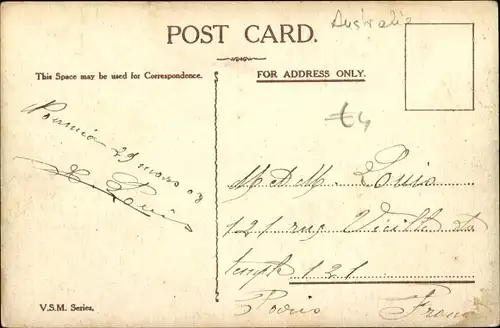 Australia
POST CARD.
This Space may be used for Correspondence.
FOR ADDRESS ONLY.
£4
29 mars 03
L. Louis
M Louis
121 rue Vieille du
temple 121
Paris France
V.S.M. Series.